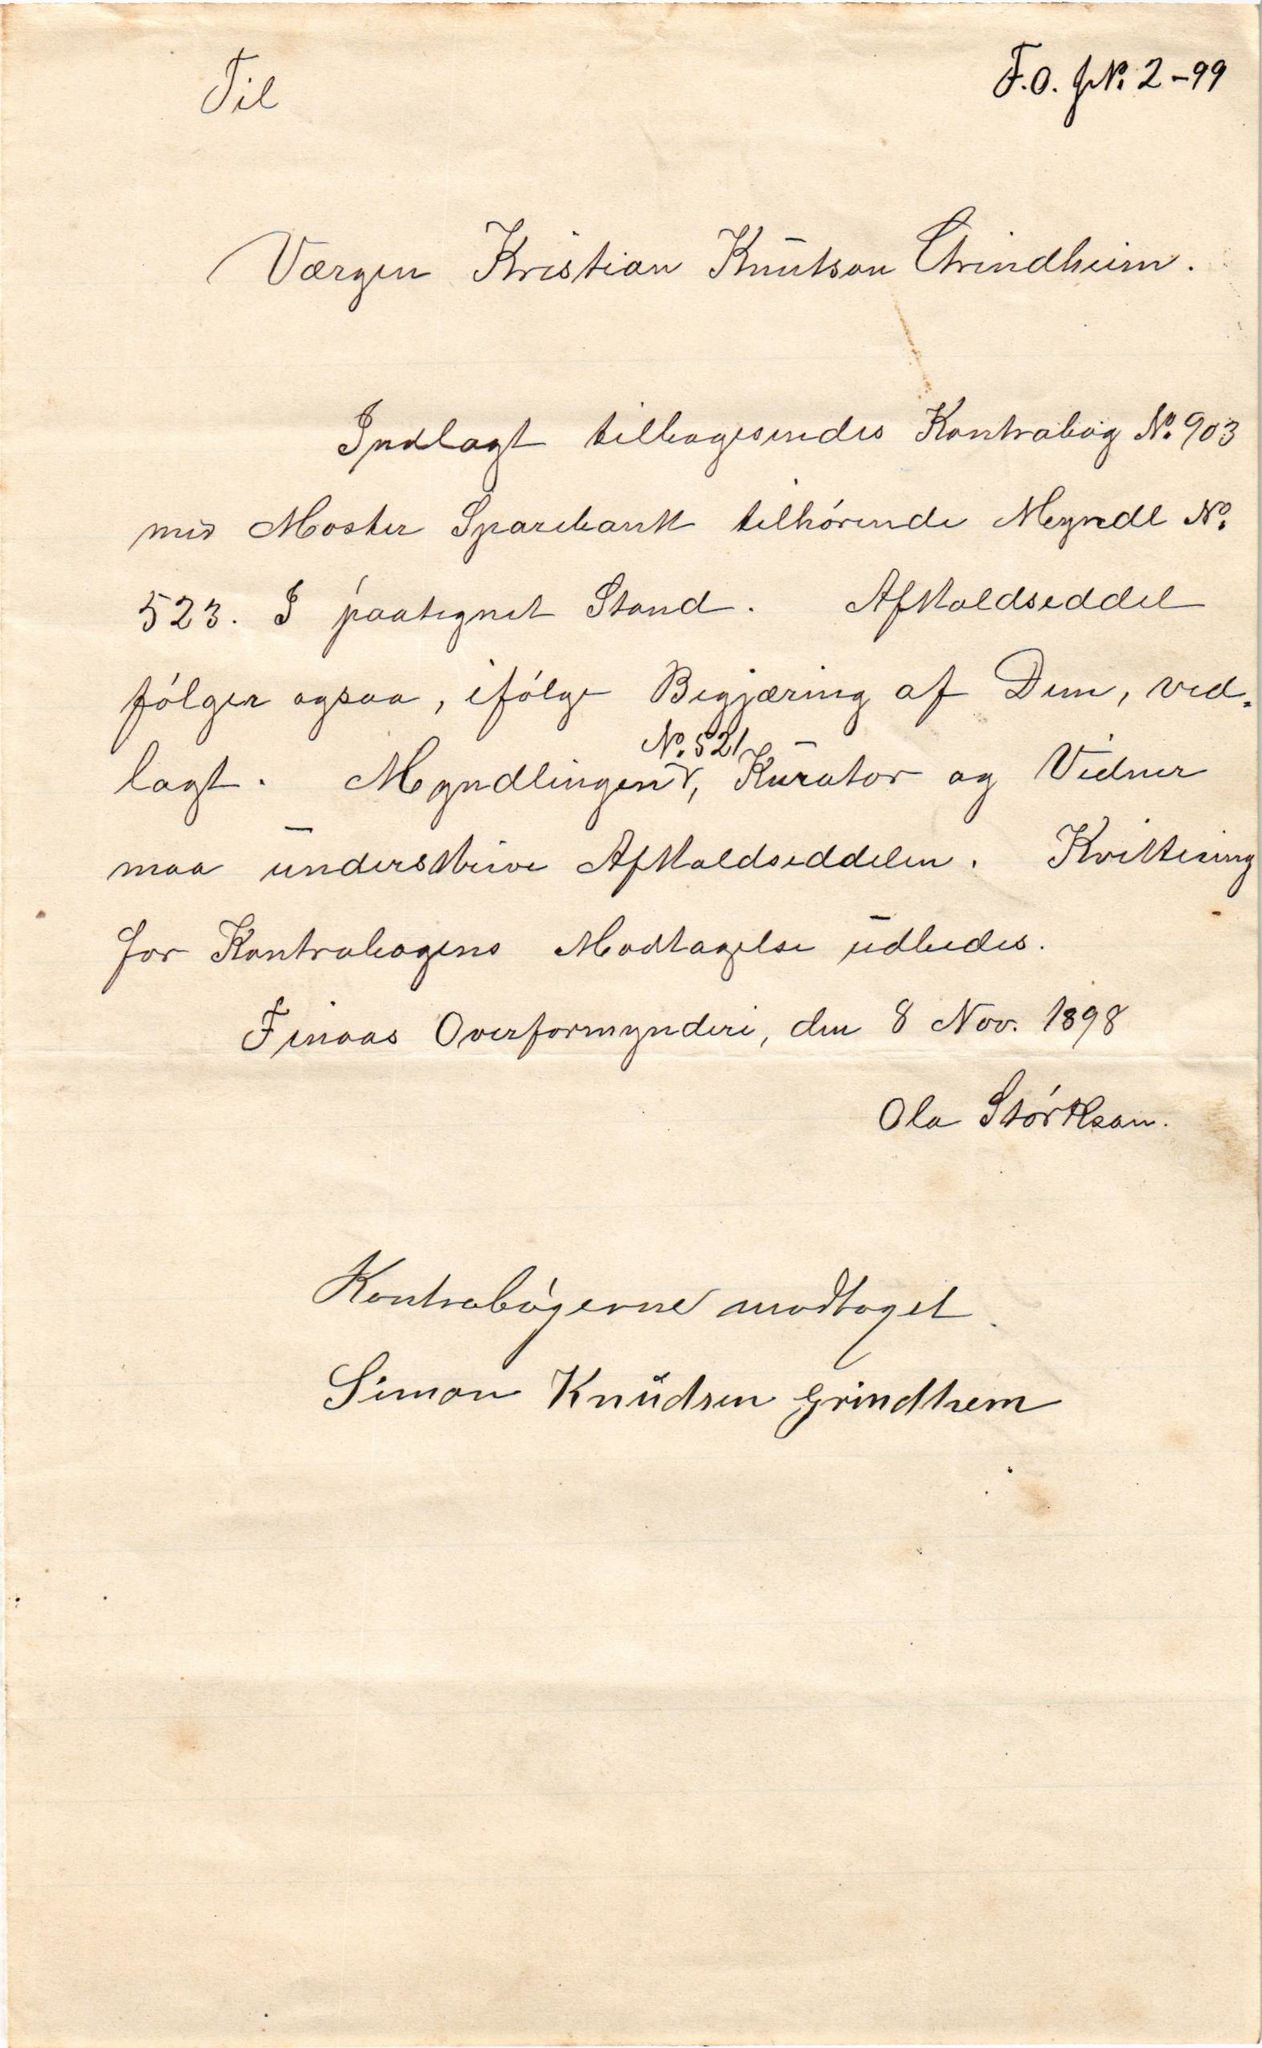 Til
F.O. J.N. 2-99
Værgen Kristian Knutson Grindheim.
Indlagt tilbagesendes Kontrabog No. 903
med Moster Sparebank tilhørende Myndl No.
523. I paategnet Stand. Afkaldseddel
følger ogsaa, ifølge Begjæring af Dem, ved-
lagt. Myndlingen No. 521, Kurator og Vidner
maa underskrive Afkaldseddelen. Kvittering
for Kontrabogens Modtagelse udbedes.
Finaas Overformynderi, den 8 Nov. 1898
Ola Størkson.
Kontrabøgerne modtaget.
Simon Knudsen Grindhem